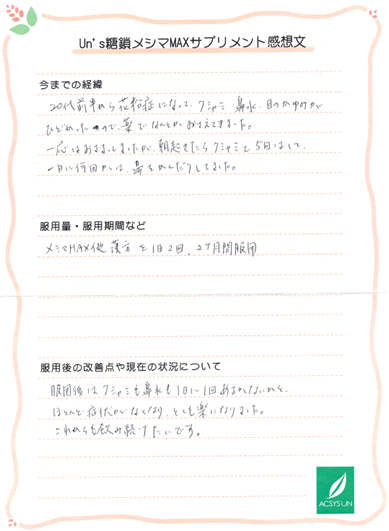 Un's糖鎖メシマMAXサプリメント感想文
今までの経緯
20代前半から花粉症になって、クシャミ 鼻水、目のかゆみが
ひどかったので、薬でなんとかおさえてきました。
一応はおさまっていましたが、朝起きたらクシャミを5回はして、
一日に何回かは、鼻をかんだりしてました。
服用量・服用期間など
メシマMAX 漢方を1日2回、2ヶ月間服用
服用後の改善点や現在の状況について
服用後はクシャミも鼻水も1日に1回あるかないかで、
ほとんど症状がなくなり、とても楽になりました。
これからも飲み続けたいです。
ACSYSUN